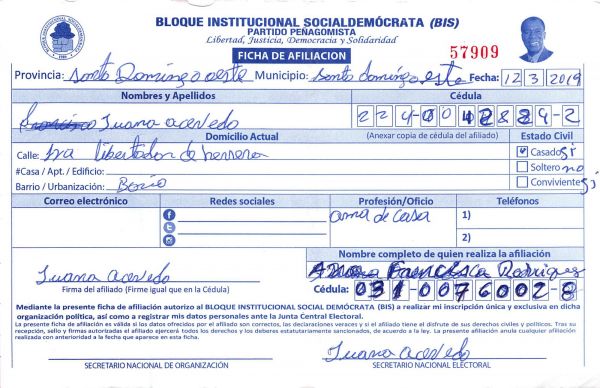 BLOQUE INSTITUCIONAL SOCIALDEMÓCRATA (BIS)
PARTIDO PEÑAGOMISTA
Libertad, Justicia, Democracia y Solidaridad
FICHA DE AFILIACION
57909
Provincia: Santo Domingo oeste Municipio: Santo domingo este Fecha: 12 3 2019
Nombres y Apellidos Cédula
Juana acevedo 224-0042824-2
Domicilio Actual (Anexar copia de cédula del afiliado) Estado Civil
Calle: libertador de herrera Casado si
#Casa / Apt. / Edificio: Soltero no
Barrio / Urbanización: Conviviente si
Correo electrónico Redes sociales Profesión/Oficio Teléfonos
ama de casa 1)
2)
Nombre completo de quien realiza la afiliación
Juana acevedo Ana Francisca Rodriguez
Firma del afiliado (Firme igual que en la Cédula) Cédula: 031-0076002-8
Mediante la presente ficha de afiliación autorizo al BLOQUE INSTITUCIONAL SOCIAL DEMÓCRATA (BIS) a realizar mi inscripción única y exclusiva en dicha
organización política, así como a registrar mis datos personales ante la Junta Central Electoral.
La presente ficha de afiliación es válida si los datos ofrecidos por el afiliado son correctos, las declaraciones veraces y si el afiliado tiene el disfrute de sus derechos civiles y políticos. Tras su
recepción, sello y firmas autorizadas el afiliado ejercerá todos los derechos y los deberes estatutariamente sancionados, de acuerdo a la ley. La presente afiliación anula cualquier afiliación
realizada con anterioridad a la fecha que aparece en esta ficha.
Juana acevedo
SECRETARIO NACIONAL DE ORGANIZACIÓN SECRETARIO NACIONAL ELECTORAL